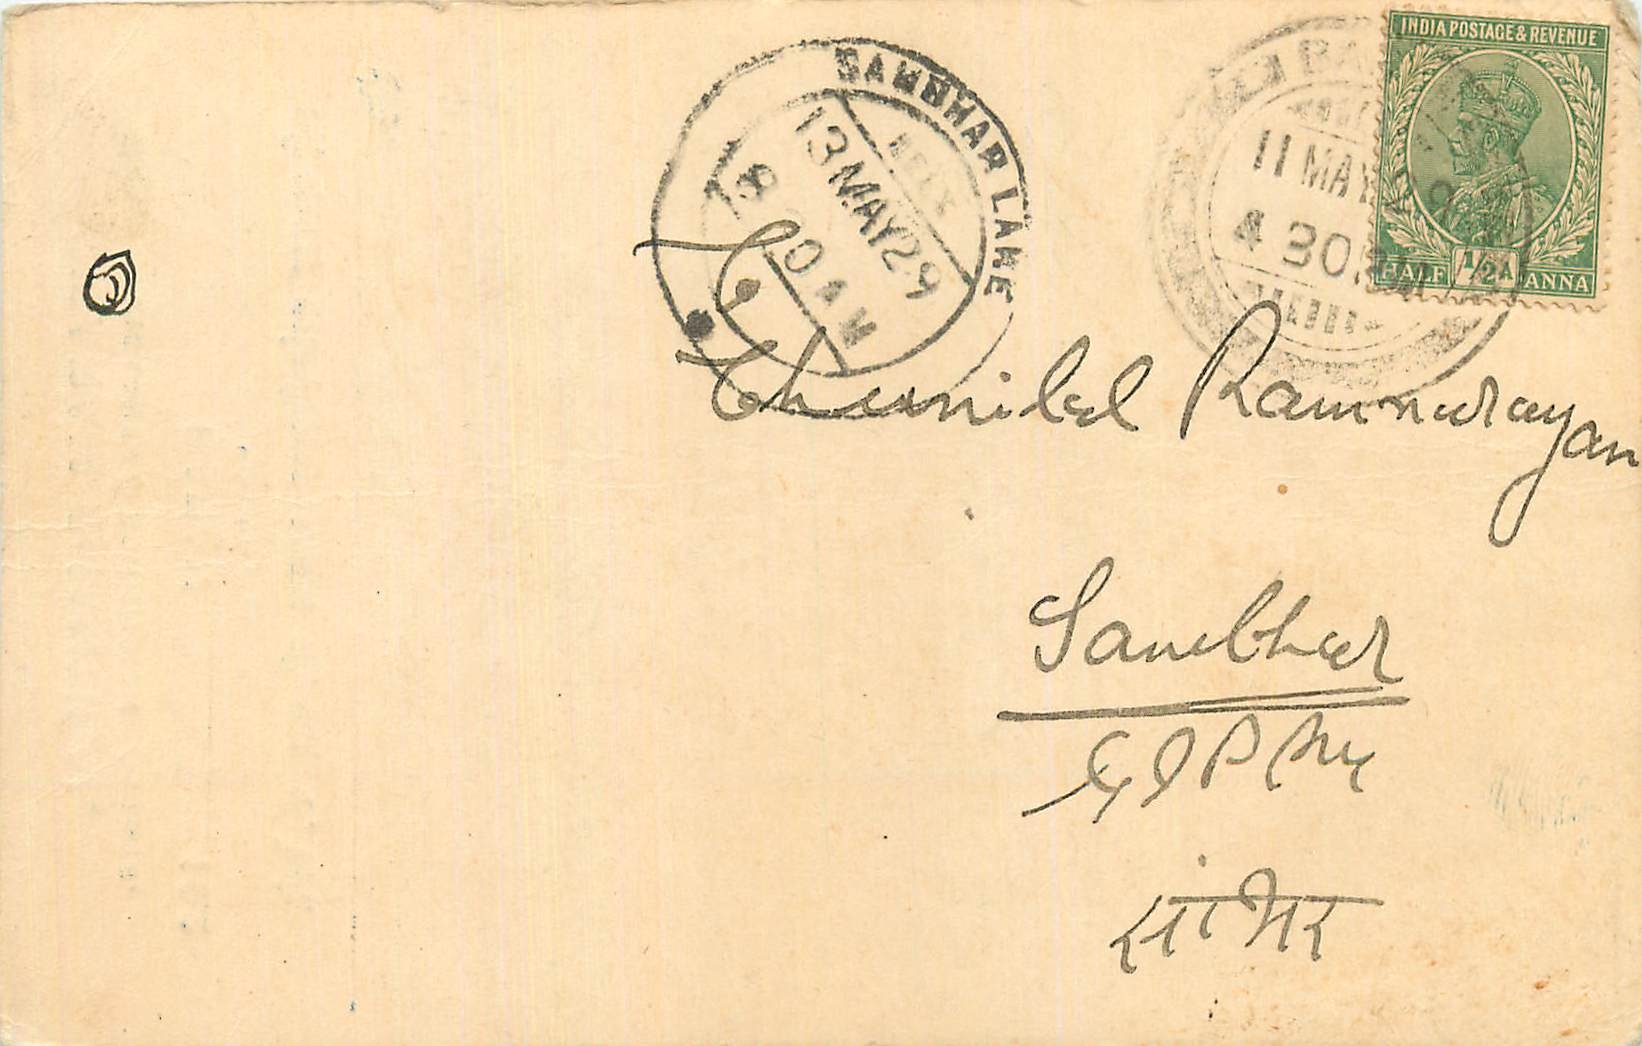 INDIA POSTAGE & REVENUE
HALF 1/2 A ANNA
11 MAY
4 30 PM
SAMBHAR LAKE
13 MAY 29
To
Chunilal Ramnarayan
Sambhar
सांभर